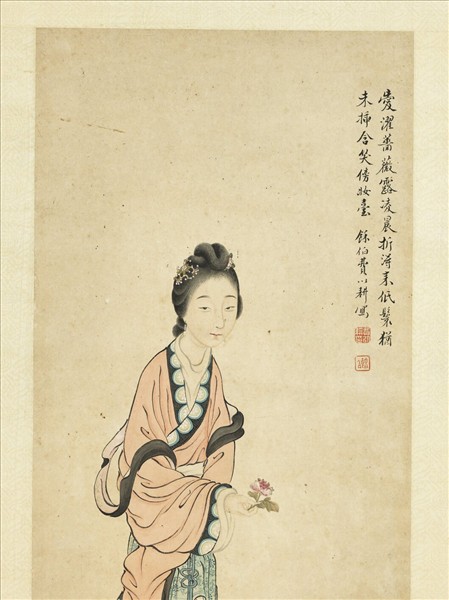 愛濯薔薇露凌晨折得来低鬟猶
未掃含笑傍妝臺 餘伯費以耕寫